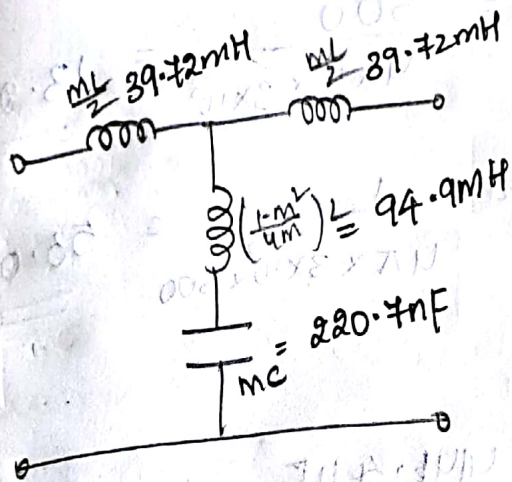 mL/2 39.72mH
mL/2 39.72mH
(1-m²/4m)L = 94.9mH
mC = 220.7nF